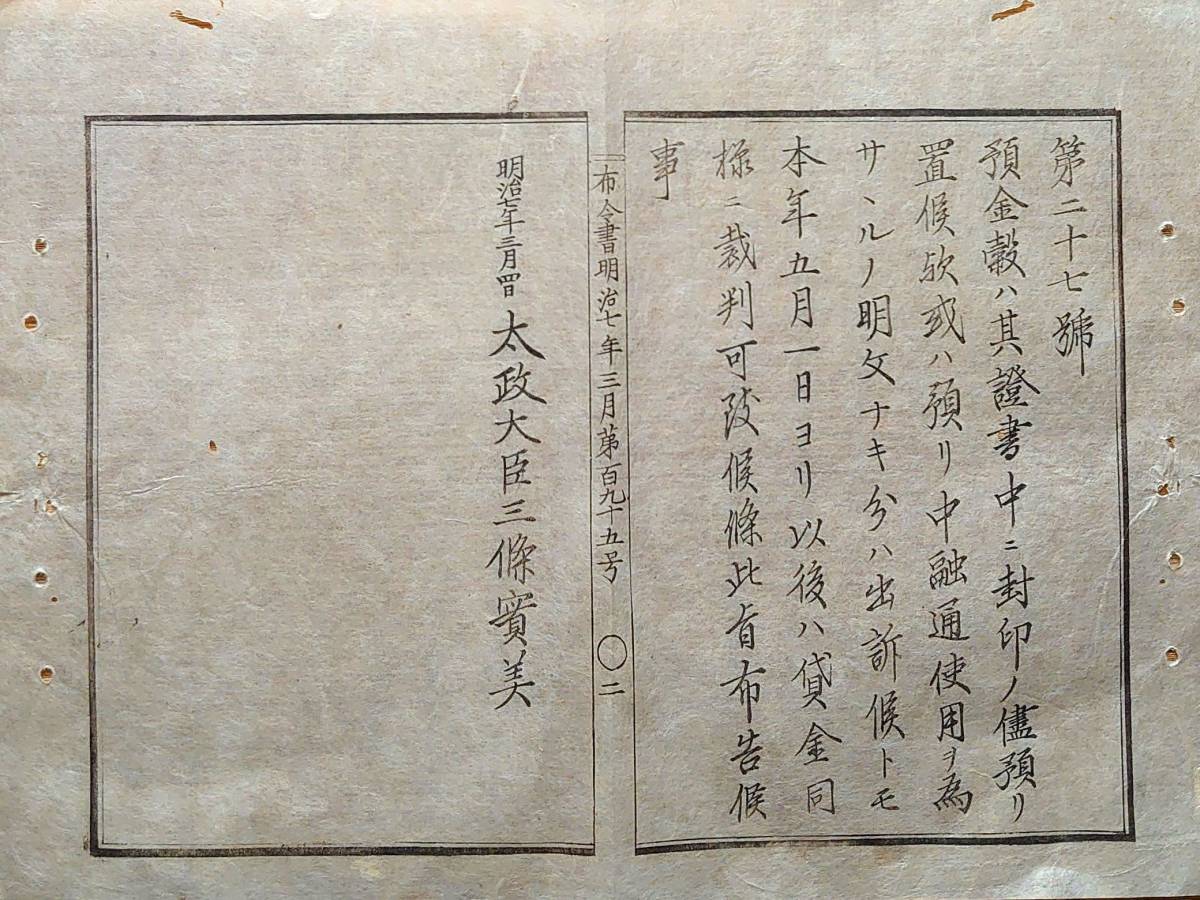 第二十七號
預金穀ハ其證書中ニ封印ノ儘預リ
置候欤或ハ預リ中融通使用ヲ為
サヽルノ明文ナキ分ハ出訴候トモ
本年五月一日ヨリ以後ハ貸金同
様ニ裁判可致候條此旨布告候
事
布令書明治七年三月第百九十五号 〇二
明治七年三月四日 太政大臣三條實美